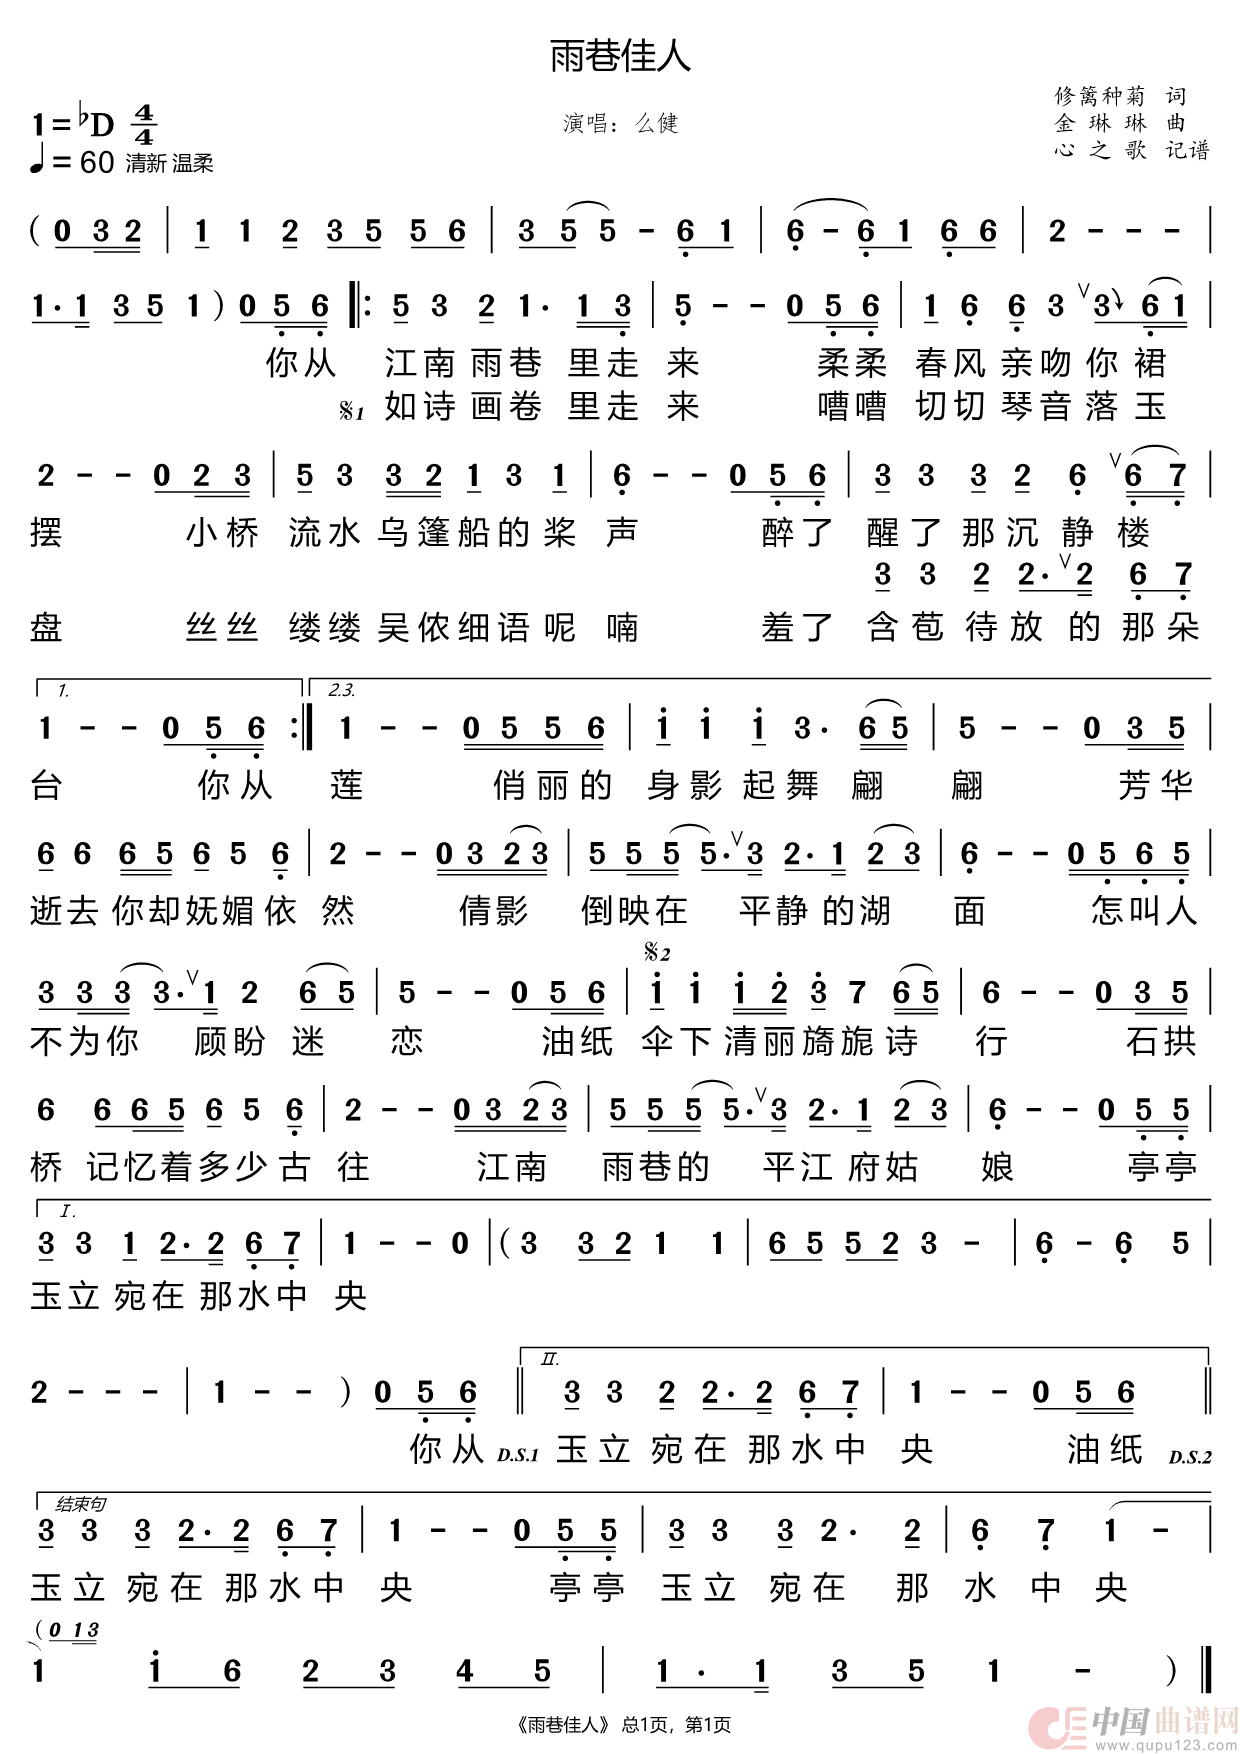 雨巷佳人
1=♭D 4/4
演唱：么健
修篱种菊 词
金琳琳 曲
心之歌 记谱
♩=60 清新 温柔
( 0 3 2 | 1 1 2 3 5 5 6 | 3 5 5 - 6 1 | 6 - 6 1 6 6 | 2 - - - |
1· 1 3 5 1 ) 0 5 6 ‖: 5 3 2 1· 1 3 | 5 - - 0 5 6 | 1 6 6 3 ∨ 3 6 1 |
你从 江南雨巷 里走来 柔柔 春风亲吻你裙
𝄋1 如诗画卷 里走来 嘈嘈 切切琴音落玉
2 - - 0 2 3 | 5 3 3 2 1 3 1 | 6 - - 0 5 6 | 3 3 3 2 6 ∨ 6 7 |
摆 小桥 流水乌篷船的桨声 醉了 醒了那沉静楼
3 3 2 2· ∨ 2 6 7
盘 丝丝 缕缕吴侬细语呢喃 羞了 含苞待放的那朵
1. 2.3.
1 - - 0 5 6 :‖ 1 - - 0 5 5 6 | 1 1 1 3· 6 5 | 5 - - 0 3 5 |
台 你从 莲 俏丽的 身影起舞翩 翩 芳华
6 6 6 5 6 5 6 | 2 - - 0 3 2 3 | 5 5 5 5· ∨ 3 2· 1 2 3 | 6 - - 0 5 6 5 |
逝去你却妩媚依然 倩影 倒映在 平静的湖面 怎叫人
𝄋2
3 3 3 3· ∨ 1 2 6 5 | 5 - - 0 5 6 | 1 1 1 2 3 7 6 5 | 6 - - 0 3 5 |
不为你 顾盼迷 恋 油纸 伞下清丽旖旎诗 行 石拱
6 6 6 5 6 5 6 | 2 - - 0 3 2 3 | 5 5 5 5· ∨ 3 2· 1 2 3 | 6 - - 0 5 5 |
桥 记忆着多少古往 江南 雨巷的 平江府姑 娘 亭亭
I.
3 3 1 2· 2 6 7 | 1 - - 0 | ( 3 3 2 1 1 | 6 5 5 2 3 - | 6 - 6 5 |
玉立宛在那水中 央
II.
2 - - - | 1 - - ) 0 5 6 ‖ 3 3 2 2· 2 6 7 | 1 - - 0 5 6 ‖
你从 D.S.1 玉立宛在那水中 央 油纸 D.S.2
结束句
3 3 3 2· 2 6 7 | 1 - - 0 5 5 | 3 3 3 2· 2 | 6 7 1 - |
玉立宛在那水中 央 亭亭 玉立 宛在 那 水 中 央
( 0 1 3
1 1 6 2 3 4 5 | 1· 1 3 5 1 - ) ‖
《雨巷佳人》 总1页，第1页
中国曲谱网
www.qupu123.com